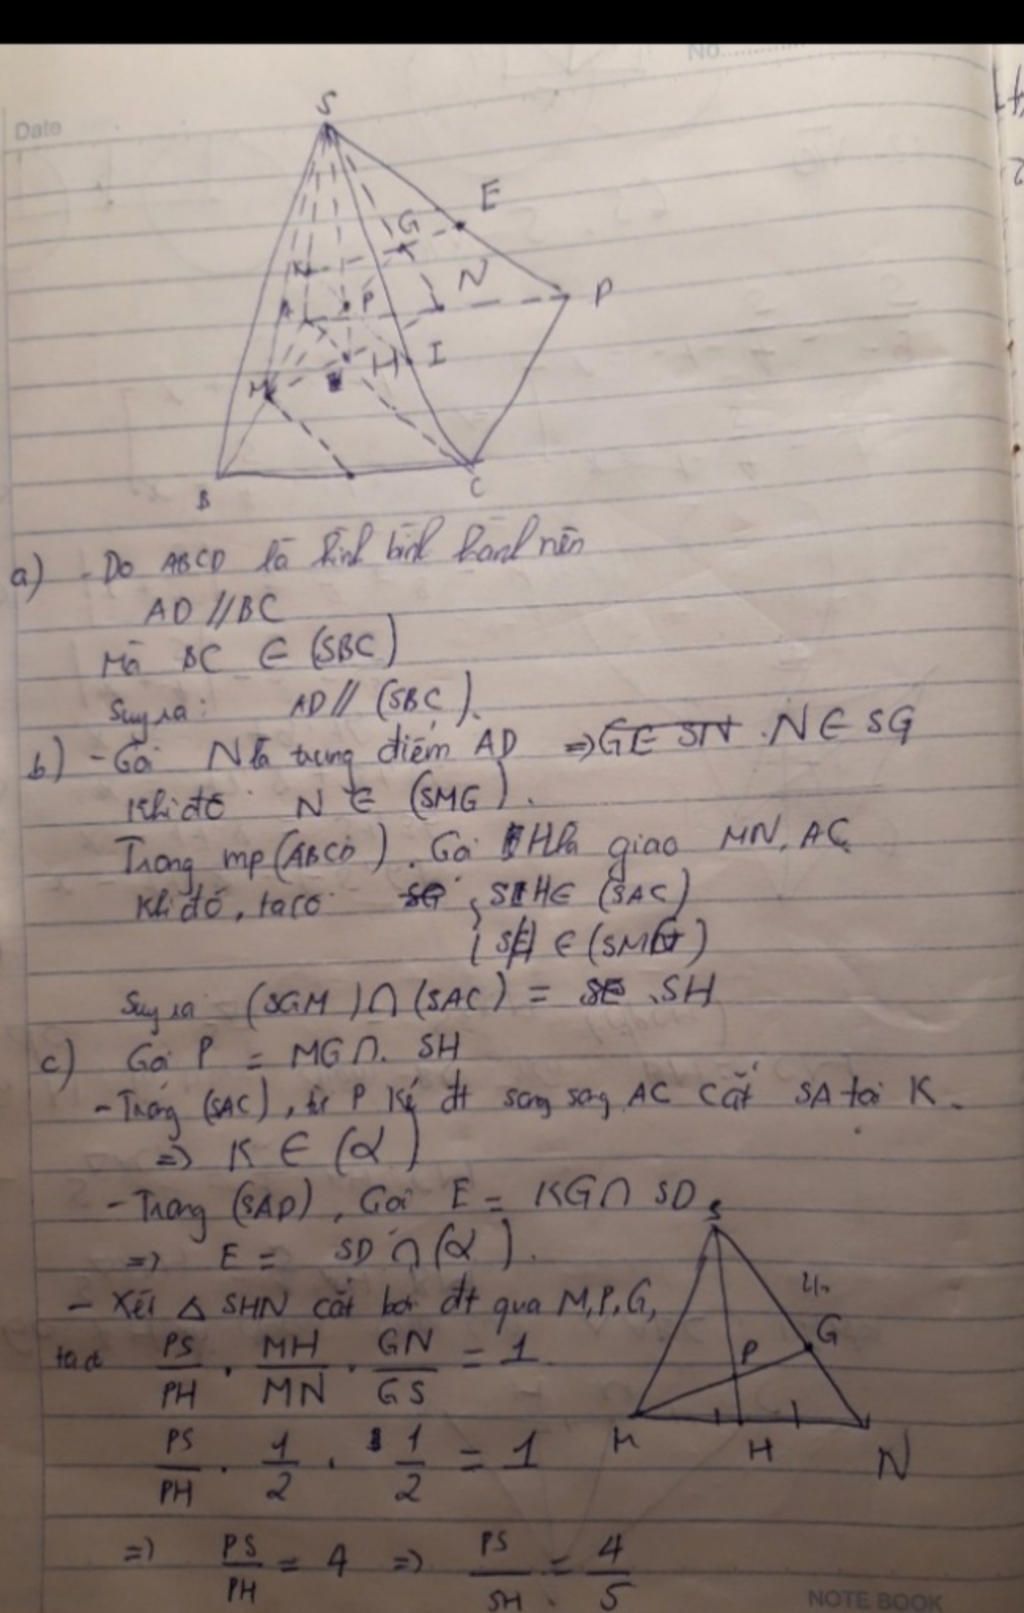 No..........
Date
S
E
G
N
K
A
P
P
M
H
I
B
C
a) - Do ABCD là hình bình hành nên
AD // BC
Mà BC ∈ (SBC)
Suy ra: AD // (SBC).
b) - Gọi N là trung điểm AD => G∈ SN . N ∈ SG
Khi đó N ∈ (SMG).
Trong mp (ABCD). Gọi H là giao MN, AC
Khi đó, ta có SG { SH ∈ (SAC)
{ SH ∈ (SMG)
Suy ra (SGM) ∩ (SAC) = SE . SH
c) Gọi P = MG ∩ . SH
- Trong (SAC), từ P kẻ đt song song AC cắt SA tại K.
=> K ∈ (α)
- Trong (SAD), Gọi E = KG ∩ SD
=> E = SD ∩ (α).
- Xét △ SHN cắt bởi đt qua M, P, G,
ta có PS/PH . MH/MN . GN/GS = 1
PS/PH . 1/2 . 1/2 = 1
=> PS/PH = 4 => PS/SH = 4/5
S
G
P
M
H
N
NOTE BOOK